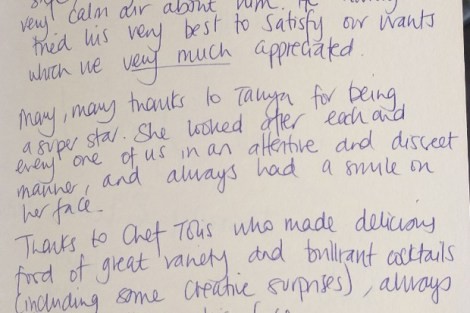 very calm air about him. He
tried his very best to satisfy our wants
which we very much appreciated.
Many, many thanks to Tanya for being
a super star. She looked after each and
every one of us in an attentive and discreet
manner, and always had a smile on
her face.
Thanks to Chef who made delicious
food of great variety and brilliant cocktails
(including some creative surprises), always